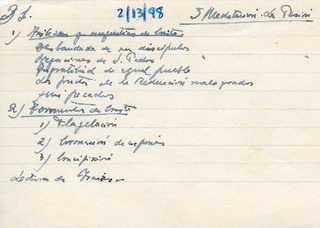 2/13/98
I Meditación La Pasión
1) Tristezas y angustias de
Desbandada de sus discípulos
Negaciones de S. Pedro
Ingratitud de aquel pueblo
Los frutos de la Redención malogrados
mis pecados
2) Tormentos de
1) Flagelación
2) Coronación de espinas
3) Crucifixión
Lectura de